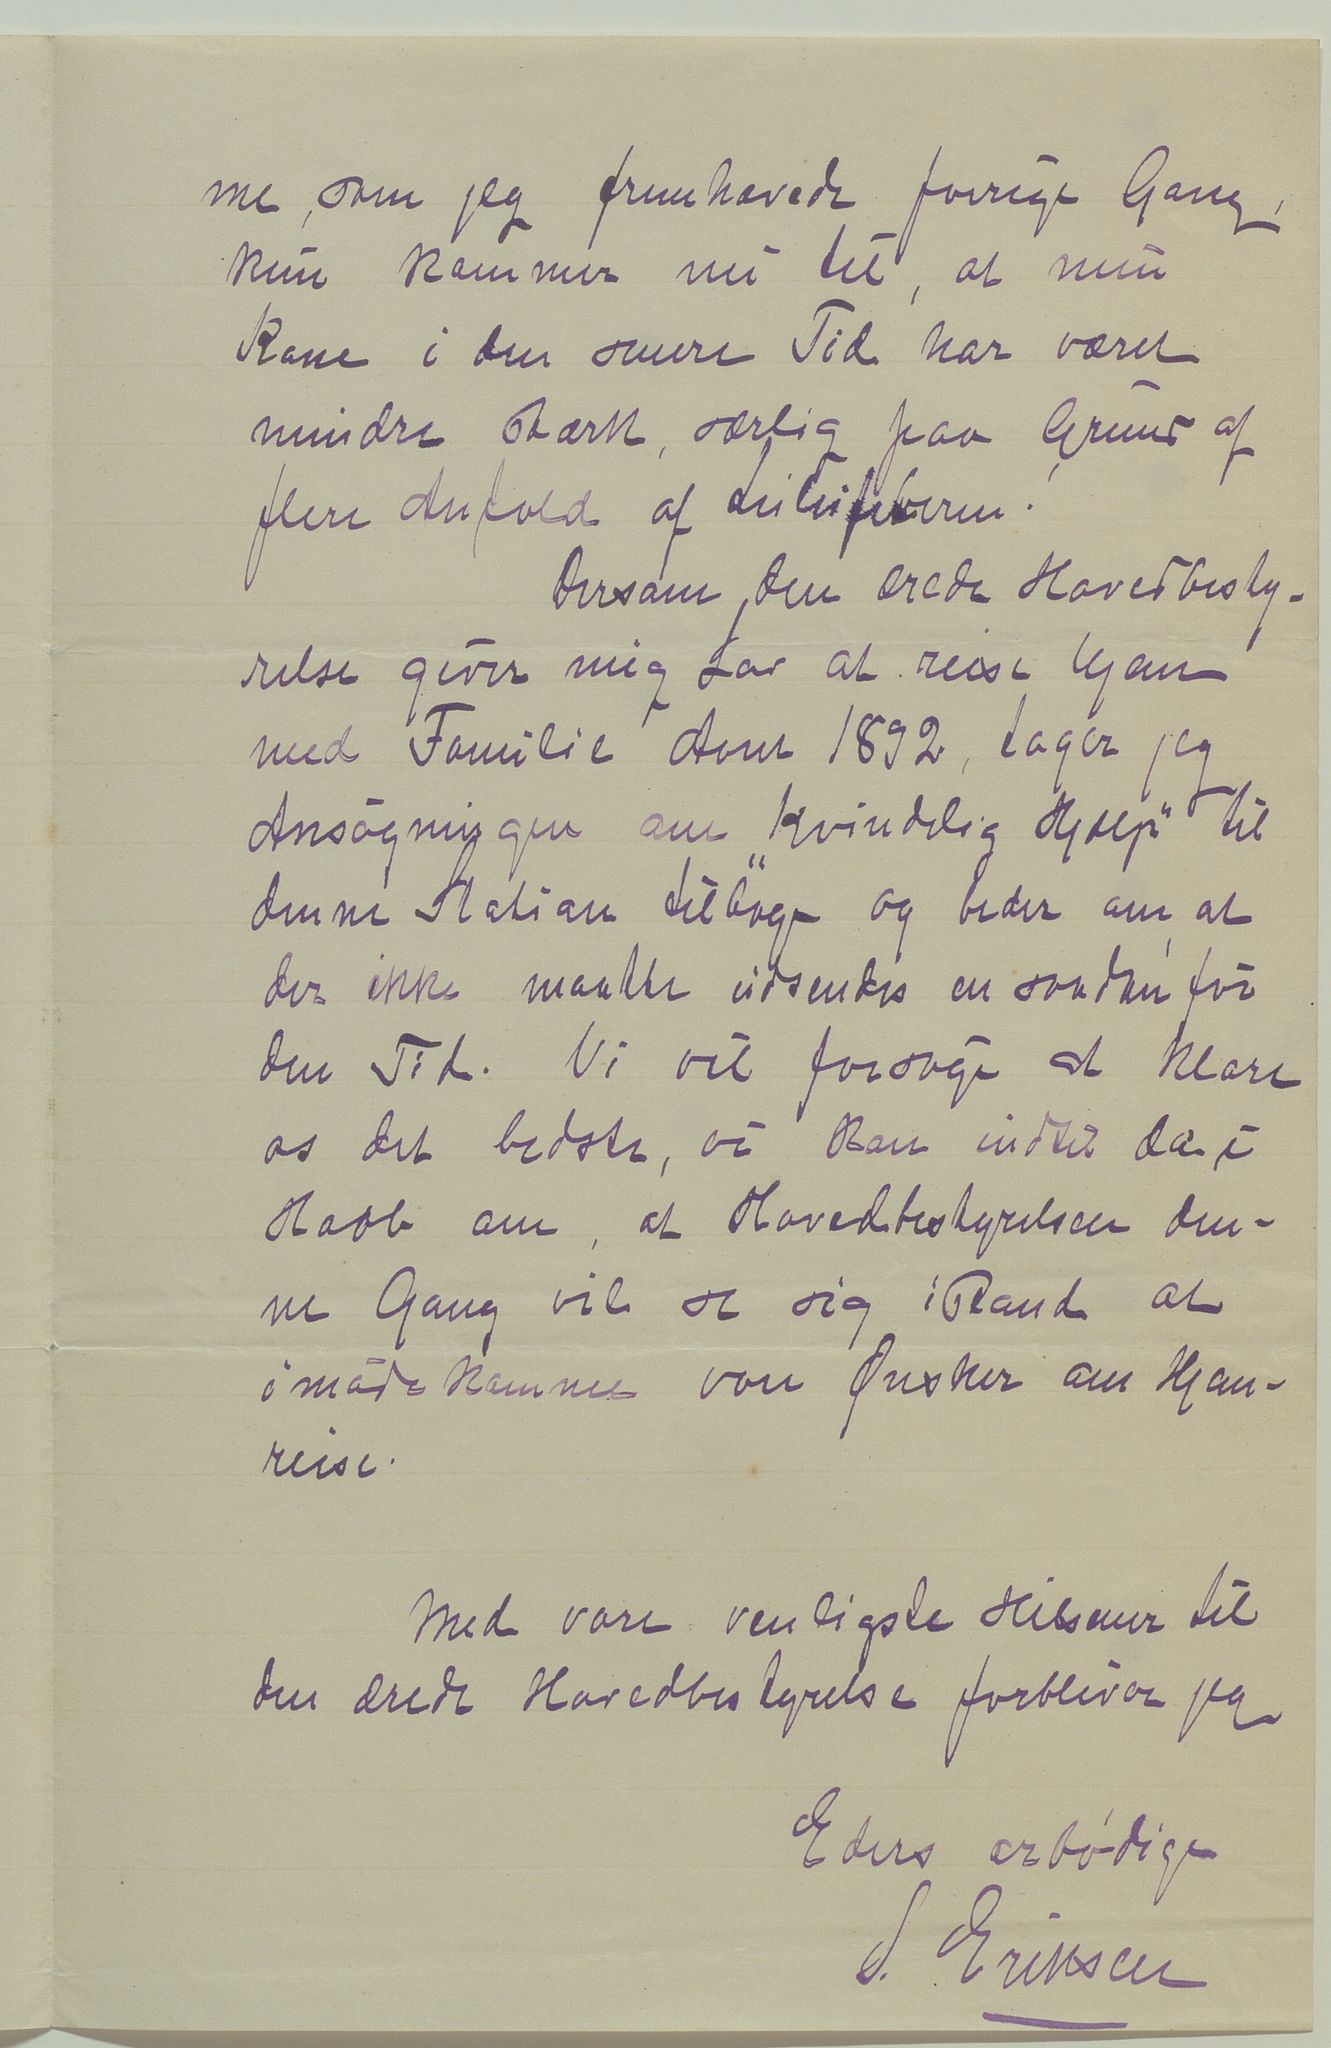 me, som jeg fremhævede forrige Gang,
kun kommer nu til, at min
Kone i den senere Tid har været
mindre stærk, særlig paa Grund af
flere Anfald af
Dersom den ærede Hovedbesty-
relse giver mig Lov at reise hjem
med Familie Aaret 1892, tager jeg
Ansøgningen om "kvindelig Hjælp" til
denne Station tilbage og beder om, at
der ikke maatte udsendes en saadan før
den Tid. Vi vil forsøge at klare
os det bedste, vi kan indtil da, i
Haab om, at Hovedbestyrelsen den-
ne Gang vil se sig istand at
imødekomme vore Ønsker om Hjem-
reise.
Med vore venligste Hilsener til
den ærede Hovedbestyrelse forbliver jeg
Eders ærbødige
S. Eriksen